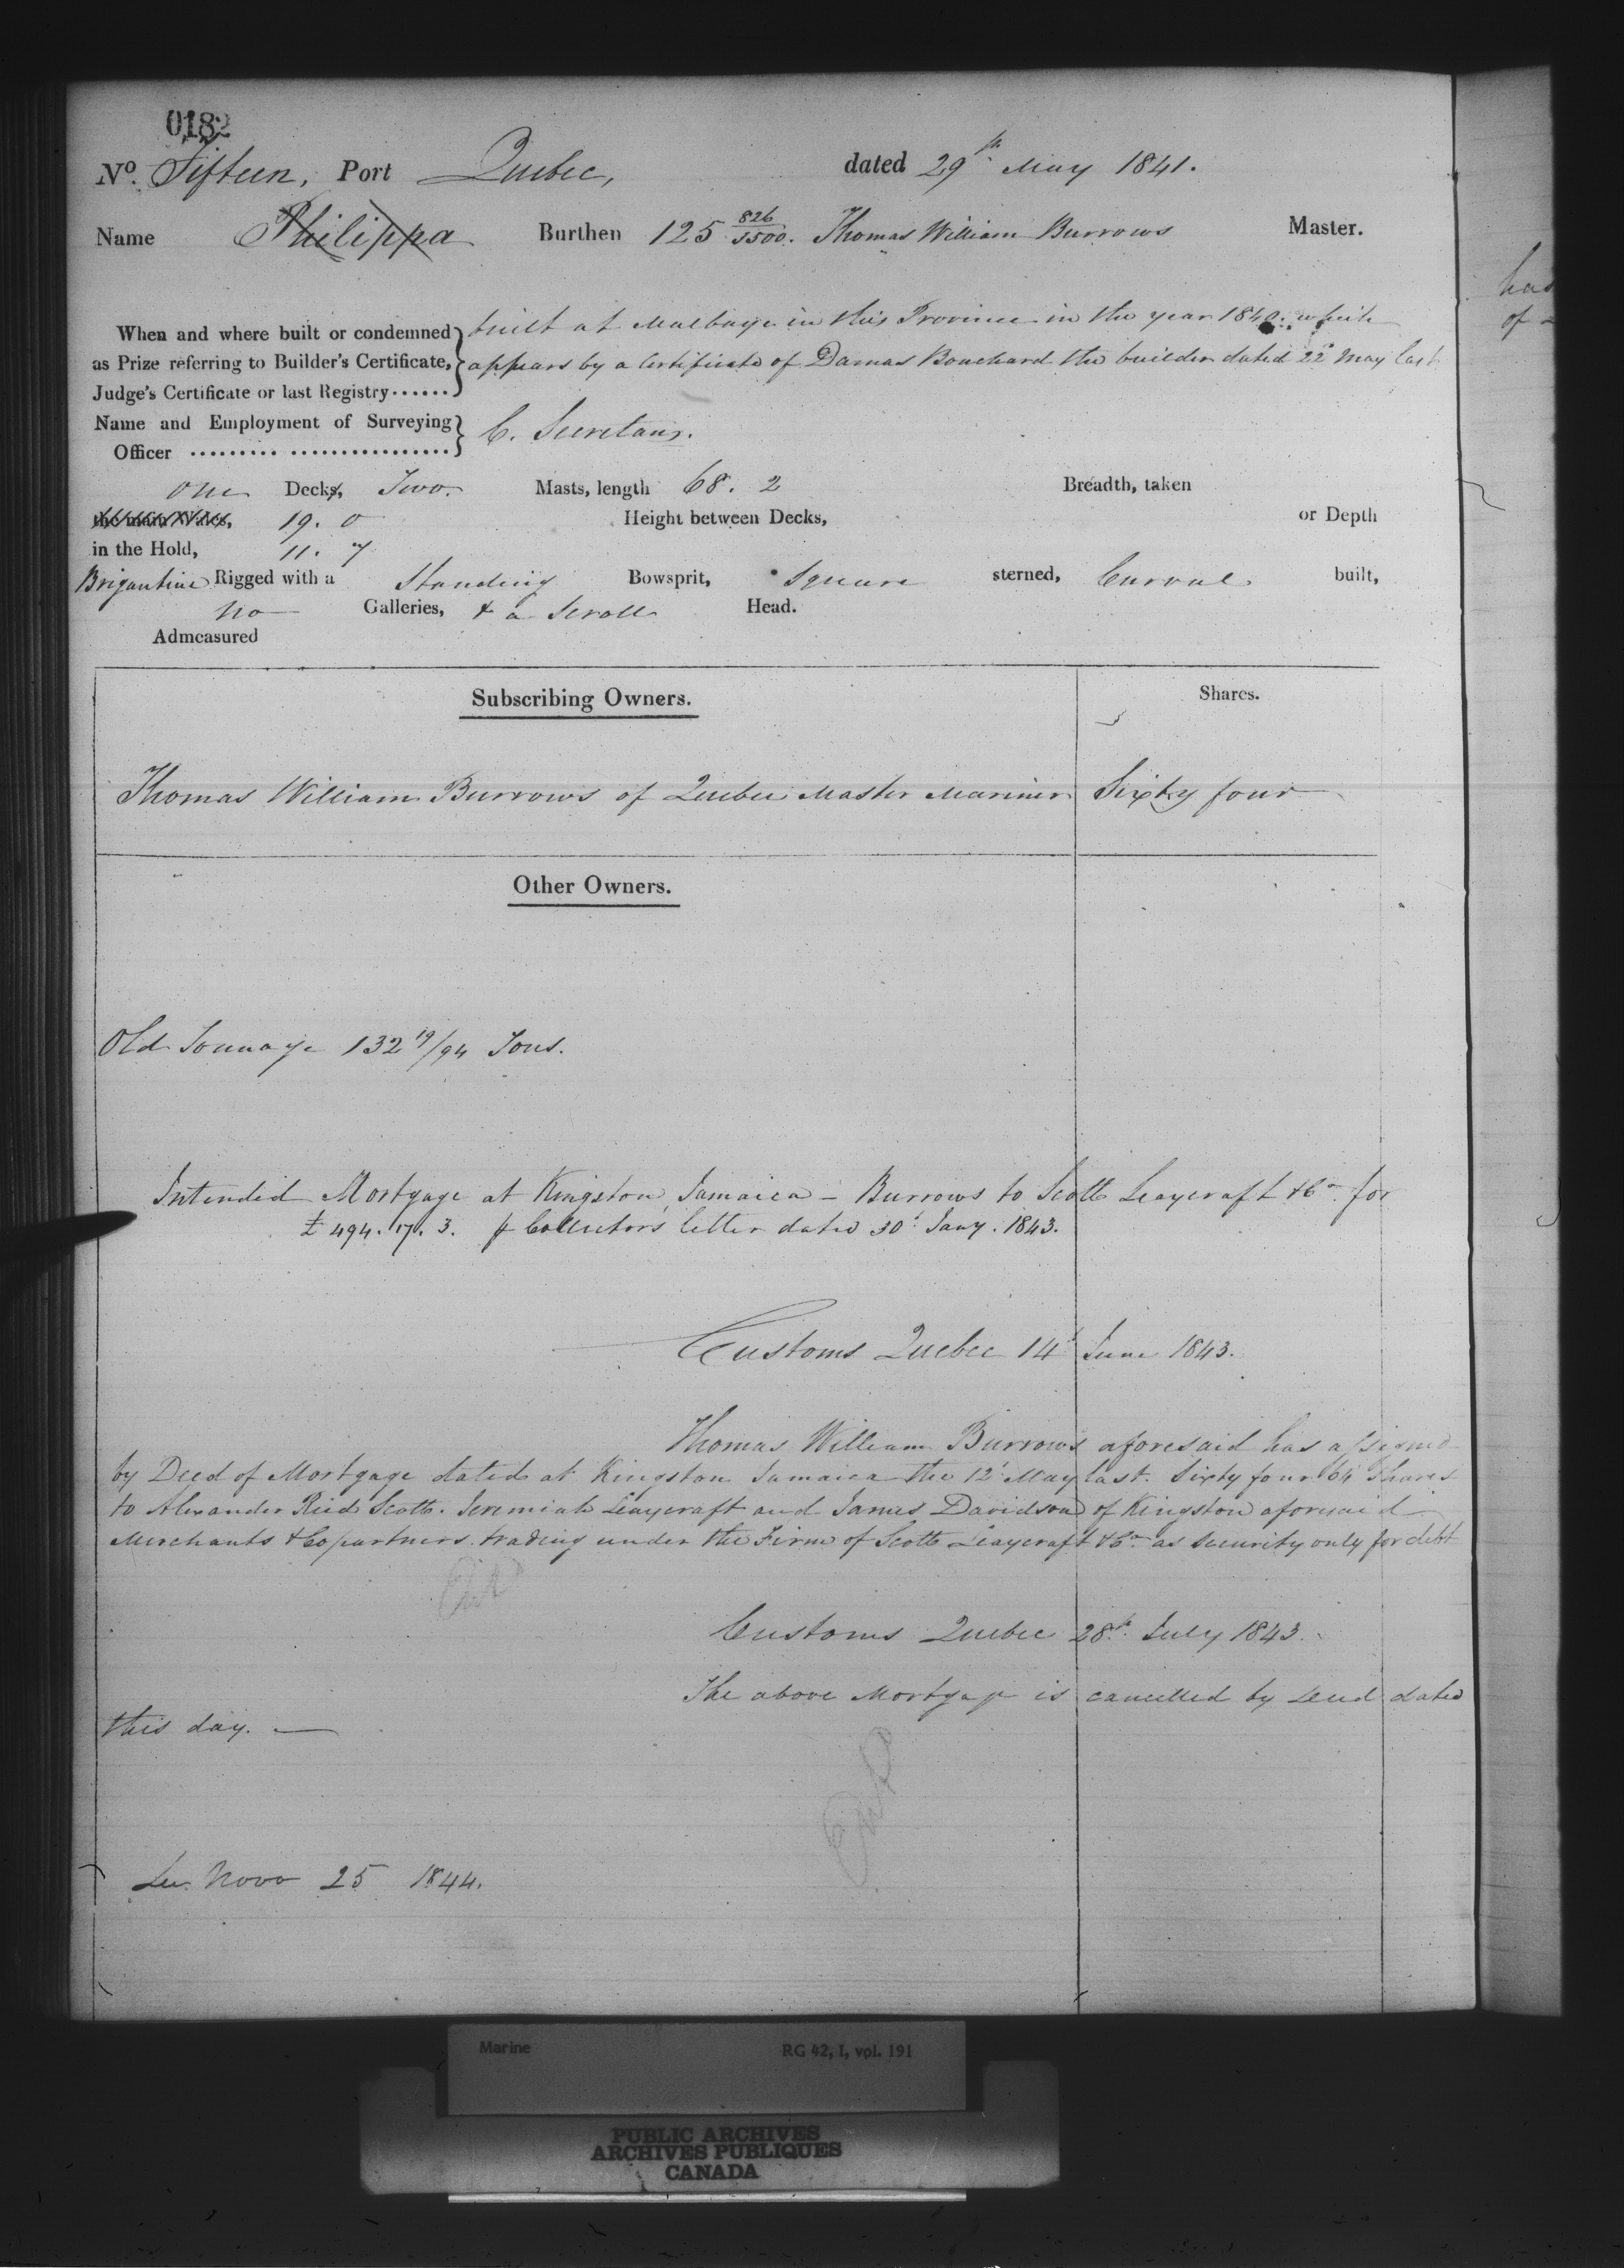 0182
No. Fifteen, Port Quebec, dated 29th May 1841.
Name Philippa Burthen 125 826/3500. Thomas William Burrows Master.
When and where built or condemned as Prize referring to Builder's Certificate, Judge's Certificate or last Registry......
built at Malbaye in this Province in the year 1840. which
appears by a Certificate of Damas Bouchard the builder dated 22d May last
Name and Employment of Surveying Officer
C. Secretan Jr.
one Decks, Two. Masts, length 68. 2 Breadth, taken
the main Wales, 19. 0 Height between Decks, or Depth
in the Hold, 11. 7
Brigantine Rigged with a Standing Bowsprit, Square sterned, Carvel built,
no Galleries, & a Scroll Head.
Admeasured
Subscribing Owners. Shares.
Thomas William Burrows of Quebec Master Mariner Sixty four
Other Owners.
Old Tonnage 132 19/94 Tons.
Intended Mortgage at Kingston, Jamaica - Burrows to Scott Leaycraft & Co. for
£ 494. 17. 3. p Collector's letter dated 30t Jany. 1843.
Customs Quebec 14t June 1843.
Thomas William Burrows aforesaid has assigned
by Deed of Mortgage dated at Kingston Jamaica the 12t May last. Sixty four 64t Shares
to Alexander Reid Scott. Jeremiah Leaycraft and James Davidson of Kingston aforesaid
Merchants & Copartners trading under the Firm of Scott Leaycraft & Co. as security only for debt
Customs Quebec 28th July 1843.
The above Mortgage is cancelled by Deed dated
this day.
See Novo 25 1844.
has
of
Marine RG 42, I, vol. 191
PUBLIC ARCHIVES
ARCHIVES PUBLIQUES
CANADA